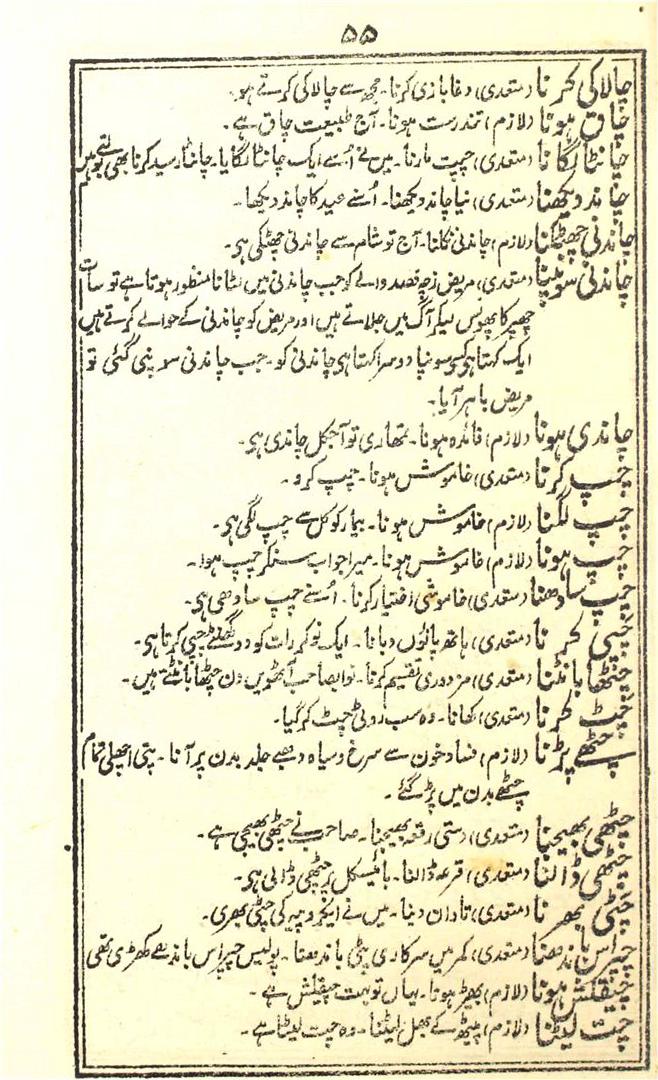 ۵۵
چالاکی کرنا (متعدی) دغا بازی کرنا۔ مجھ سے چالاکی کرتے ہو۔
چاق ہونا (لازم) تندرست ہونا۔ آج طبیعت چاق ہے۔
چانٹا لگانا (متعدی) چپت مارنا۔ میں نے اُسے ایک چانٹا لگایا۔ چانٹا رسید کرنا بھی بولتے ہیں
چاند دیکھنا (متعدی) نیا چاند دیکھنا۔ اُسنے عید کا چاند دیکھا۔
چاندنی چھٹکنا (لازم) چاندنی نکلنا۔ آج تو شام سے چاندنی چھٹکی ہی۔
چاندنی سونپنا (متعدی) مریض زچہ فصد والے کو جب چاندنی میں لٹانا منظور ہوتا ہے تو سات
چھپر کا پھونس لیکر آگ میں جلاتے ہیں اور مریض کو چاندنی کے حوالے کرتے ہیں
ایک کہتا ہی کسکو سونپا دوسرا کہتا ہی چاندنی کو۔ جب چاندنی سونپی گئی تو
مریض باہر آیا۔
چاندی ہونا (لازم) فائدہ ہونا۔ تمھاری تو آجکل چاندی ہی۔
چپ کرنا (متعدی) خاموش ہونا۔ چپ کرو۔
چپ لگنا (لازم) خاموش ہونا۔ بیمار کو کل سے چپ لگی ہی۔
چپ ہونا (لازم) خاموش ہونا۔ میرا جواب سنکر چپ ہوا۔
چپ سادھنا (متعدی) خاموشی اختیار کرنا۔ اُسنے چپ سادھی ہی۔
چپی کرنا (متعدی) ہاتھ پانوں دبانا۔ ایک نوکر رات کو دو گھنٹے چپی کرتا ہی۔
چٹھا بانٹنا (متعدی) مزدوری تقسیم کرنا۔ نوابصاحب آٹھویں دن چٹھا بانٹتے ہیں۔
چٹ کرنا (متعدی) کھانا۔ وہ سب روٹی چٹ کر گیا۔
چٹے پڑنا (لازم) فساد خون سے سرخ و سیاہ دھبے جلد بدن پر آنا۔ پتی اچھلی تمام
چٹے بدن میں پڑ گئے۔
چٹھی بھیجنا (متعدی) دستی رقعہ بھیجنا۔ صاحب نے چٹھی بھیجی ہے۔
چٹھی ڈالنا (متعدی) قرعہ ڈالنا۔ بائیسکل پر چٹھی ڈالی ہی۔
چٹی بھرنا (متعدی) تاوان دینا۔ میں نے ایکروپیہ کی چٹی بھری۔
چپراس باندھنا (متعدی) کمر میں سرکاری پٹی باندھنا۔ پولیس چپراس باندھے کھڑی تھی
چپقلش ہونا (لازم) بھیڑ ہونا۔ یہاں تو بہت چپقلش ہے۔
چت لیٹنا (لازم) پیٹھ کے بھل لیٹنا۔ وہ چت لیٹا ہے۔